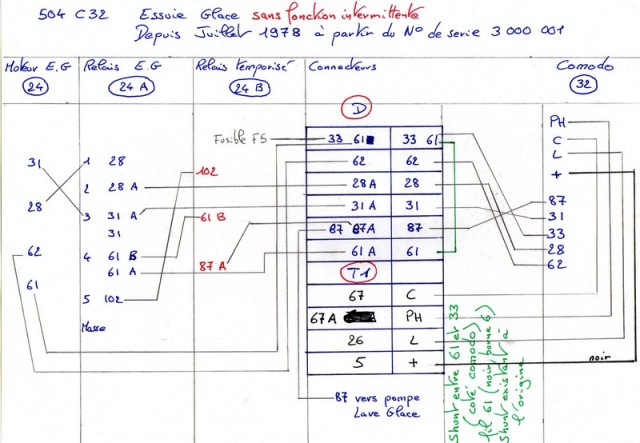 504 C32 Essuie Glace sans fonction intermittente
Depuis Juillet 1978 à partir du N° de serie 3 000 001
Moteur E.G Relais E.G Relais temporisé Connecteurs Comodo
24 24 A 24 B 32
D
PH
Fusible F5 33 61 33 61 C
31 1 28 62 62 L
102 +
2 28 A 28 A 28
87
28 3 31 A 61 B 31 A 31 31
31 87 87A 87 33
62 4 61 B 28
61 A 87 A 61 A 61 62
61 T1
5 102 67 C
Masse 67A PH
26 L
5 + noir
87 vers pompe
Lave Glace
Shunt entre 61 et 33
(coté comodo)
fil 61 (noir, borne 6)
Shunt existant à
l'origine